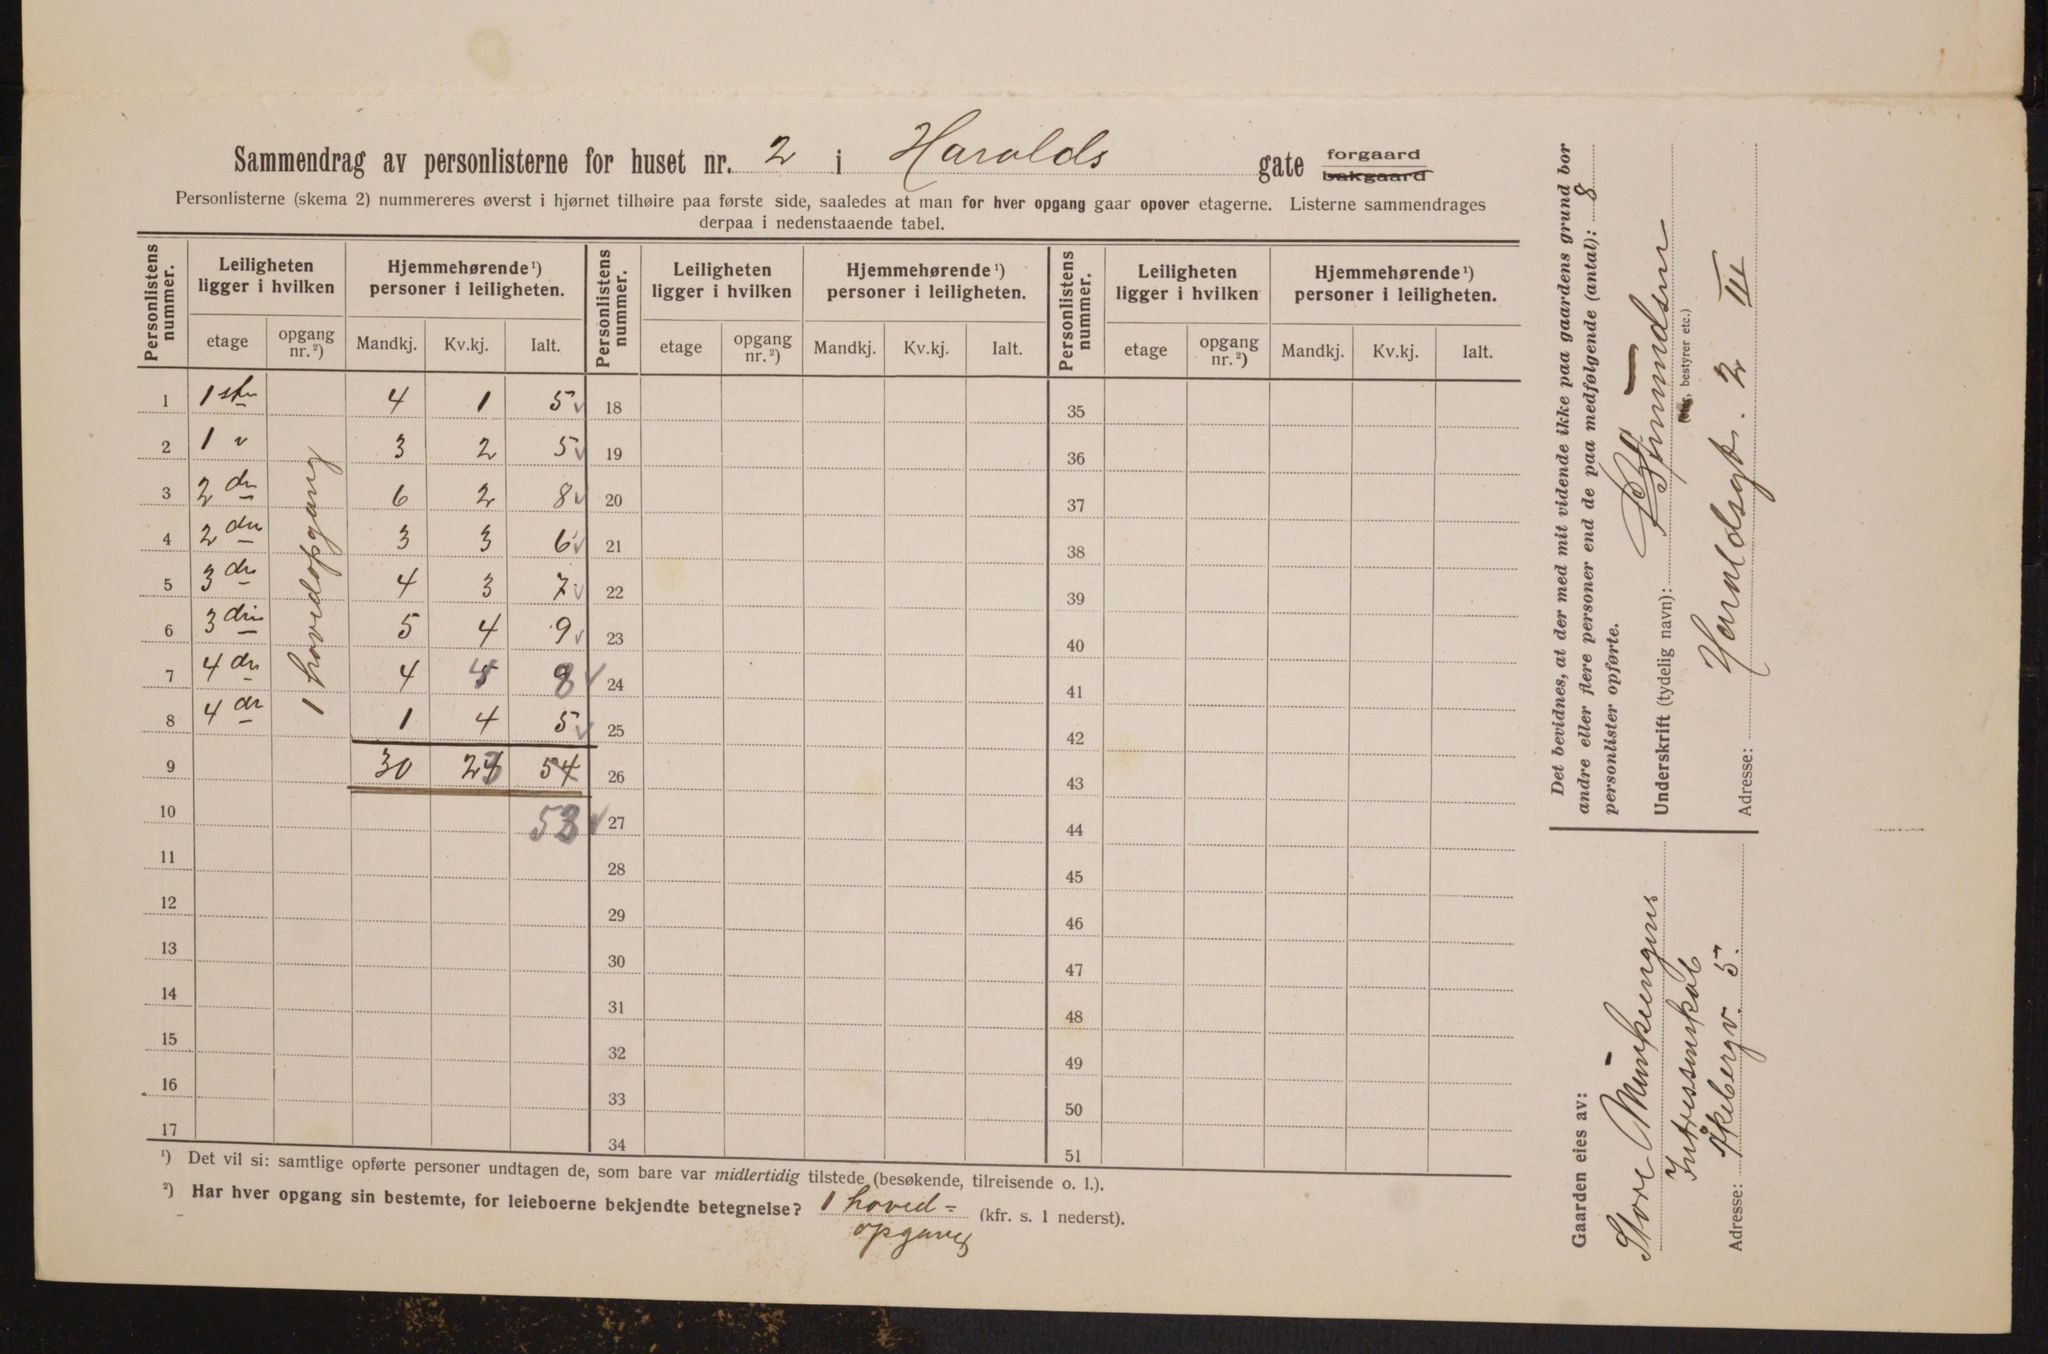 Sammendrag av personlisterne for huset nr. 2 i Haralds gate forgaard bakgaard
Personlisterne (skema 2) nummereres øverst i hjørnet tilhøire paa første side, saaledes at man for hver opgang gaar opover etagerne. Listerne sammendrages
derpaa i nedenstaaende tabel.
Personlistens nummer. Leiligheten ligger i hvilken Hjemmehørende¹) personer i leiligheten. Personlistens nummer. Leiligheten ligger i hvilken Hjemmehørende¹) personer i leiligheten. Personlistens nummer. Leiligheten ligger i hvilken Hjemmehørende¹) personer i leiligheten.
etage opgang nr.²) Mandkj. Kv.kj. Ialt. etage opgang nr.²) Mandkj. Kv.kj. Ialt. etage opgang nr.²) Mandkj. Kv.kj. Ialt.
1 hovedopgang
1 1 4 1 5 18 35
2 1 3 2 5 19 36
3 2 6 2 8 20 37
4 2 3 3 6 21 38
5 3 4 3 7 22 39
6 3 5 4 9 23 40
7 4 4 4 8 24 41
8 4 1 4 5 25 42
9 30 23 54 26 43
10 53 27 44
11 28 45
12 29 46
13 30 47
14 31 48
15 32 49
16 33 50
17 34 51
¹) Det vil si: samtlige opførte personer undtagen de, som bare var midlertidig tilstede (besøkende, tilreisende o. l.).
²) Har hver opgang sin bestemte, for leieboerne bekjendte betegnelse? 1 hoved= (kfr. s. 1 nederst).
opgang
Det bevidnes, at der med mit vidende ikke paa gaardens grund bor
andre eller flere personer end de paa medfølgende (antal): 8
personlister opførte.
Underskrift (tydelig navn):
bestyrer etc.)
Haraldsgt. 2 III
Adresse:
Gaarden eies av:
Store Munkengens
Intressentskab
Adresse: Åkebergv. 5.